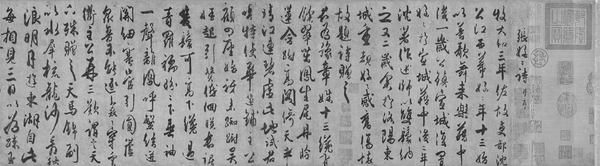 張好好詩并序
牧大和三年佐故吏部沈
公江西幕好好年十三始
以善歌舞來樂籍中
後一歲公鎮宣城復置好
好於宣城籍中後二歲為
沈著作述師以雙鬟納
之又二歲余於洛陽東
城重覩好好感舊傷懷
故題詩贈之
君為豫章姝十三纔有
餘翠茁鳳生尾丹臉
蓮含跗高閣倚天半晴
江連碧虛此地試君
唱特使華筵鋪主公
顧四座始訝來踟躕吳
娃起引贊低佪映長裾
雙鬟可高下纔過
青羅襦盼盼下垂袖
一聲離鳳呼繁弦迸
關紐塞管引圓蘆
衆音不能逐裊裊穿雲
衢主公再三歎謂言天下
殊贈之天馬錦副
以水犀梳龍沙看秋
浪明月遊東湖自此
每相見三日以為疏玉